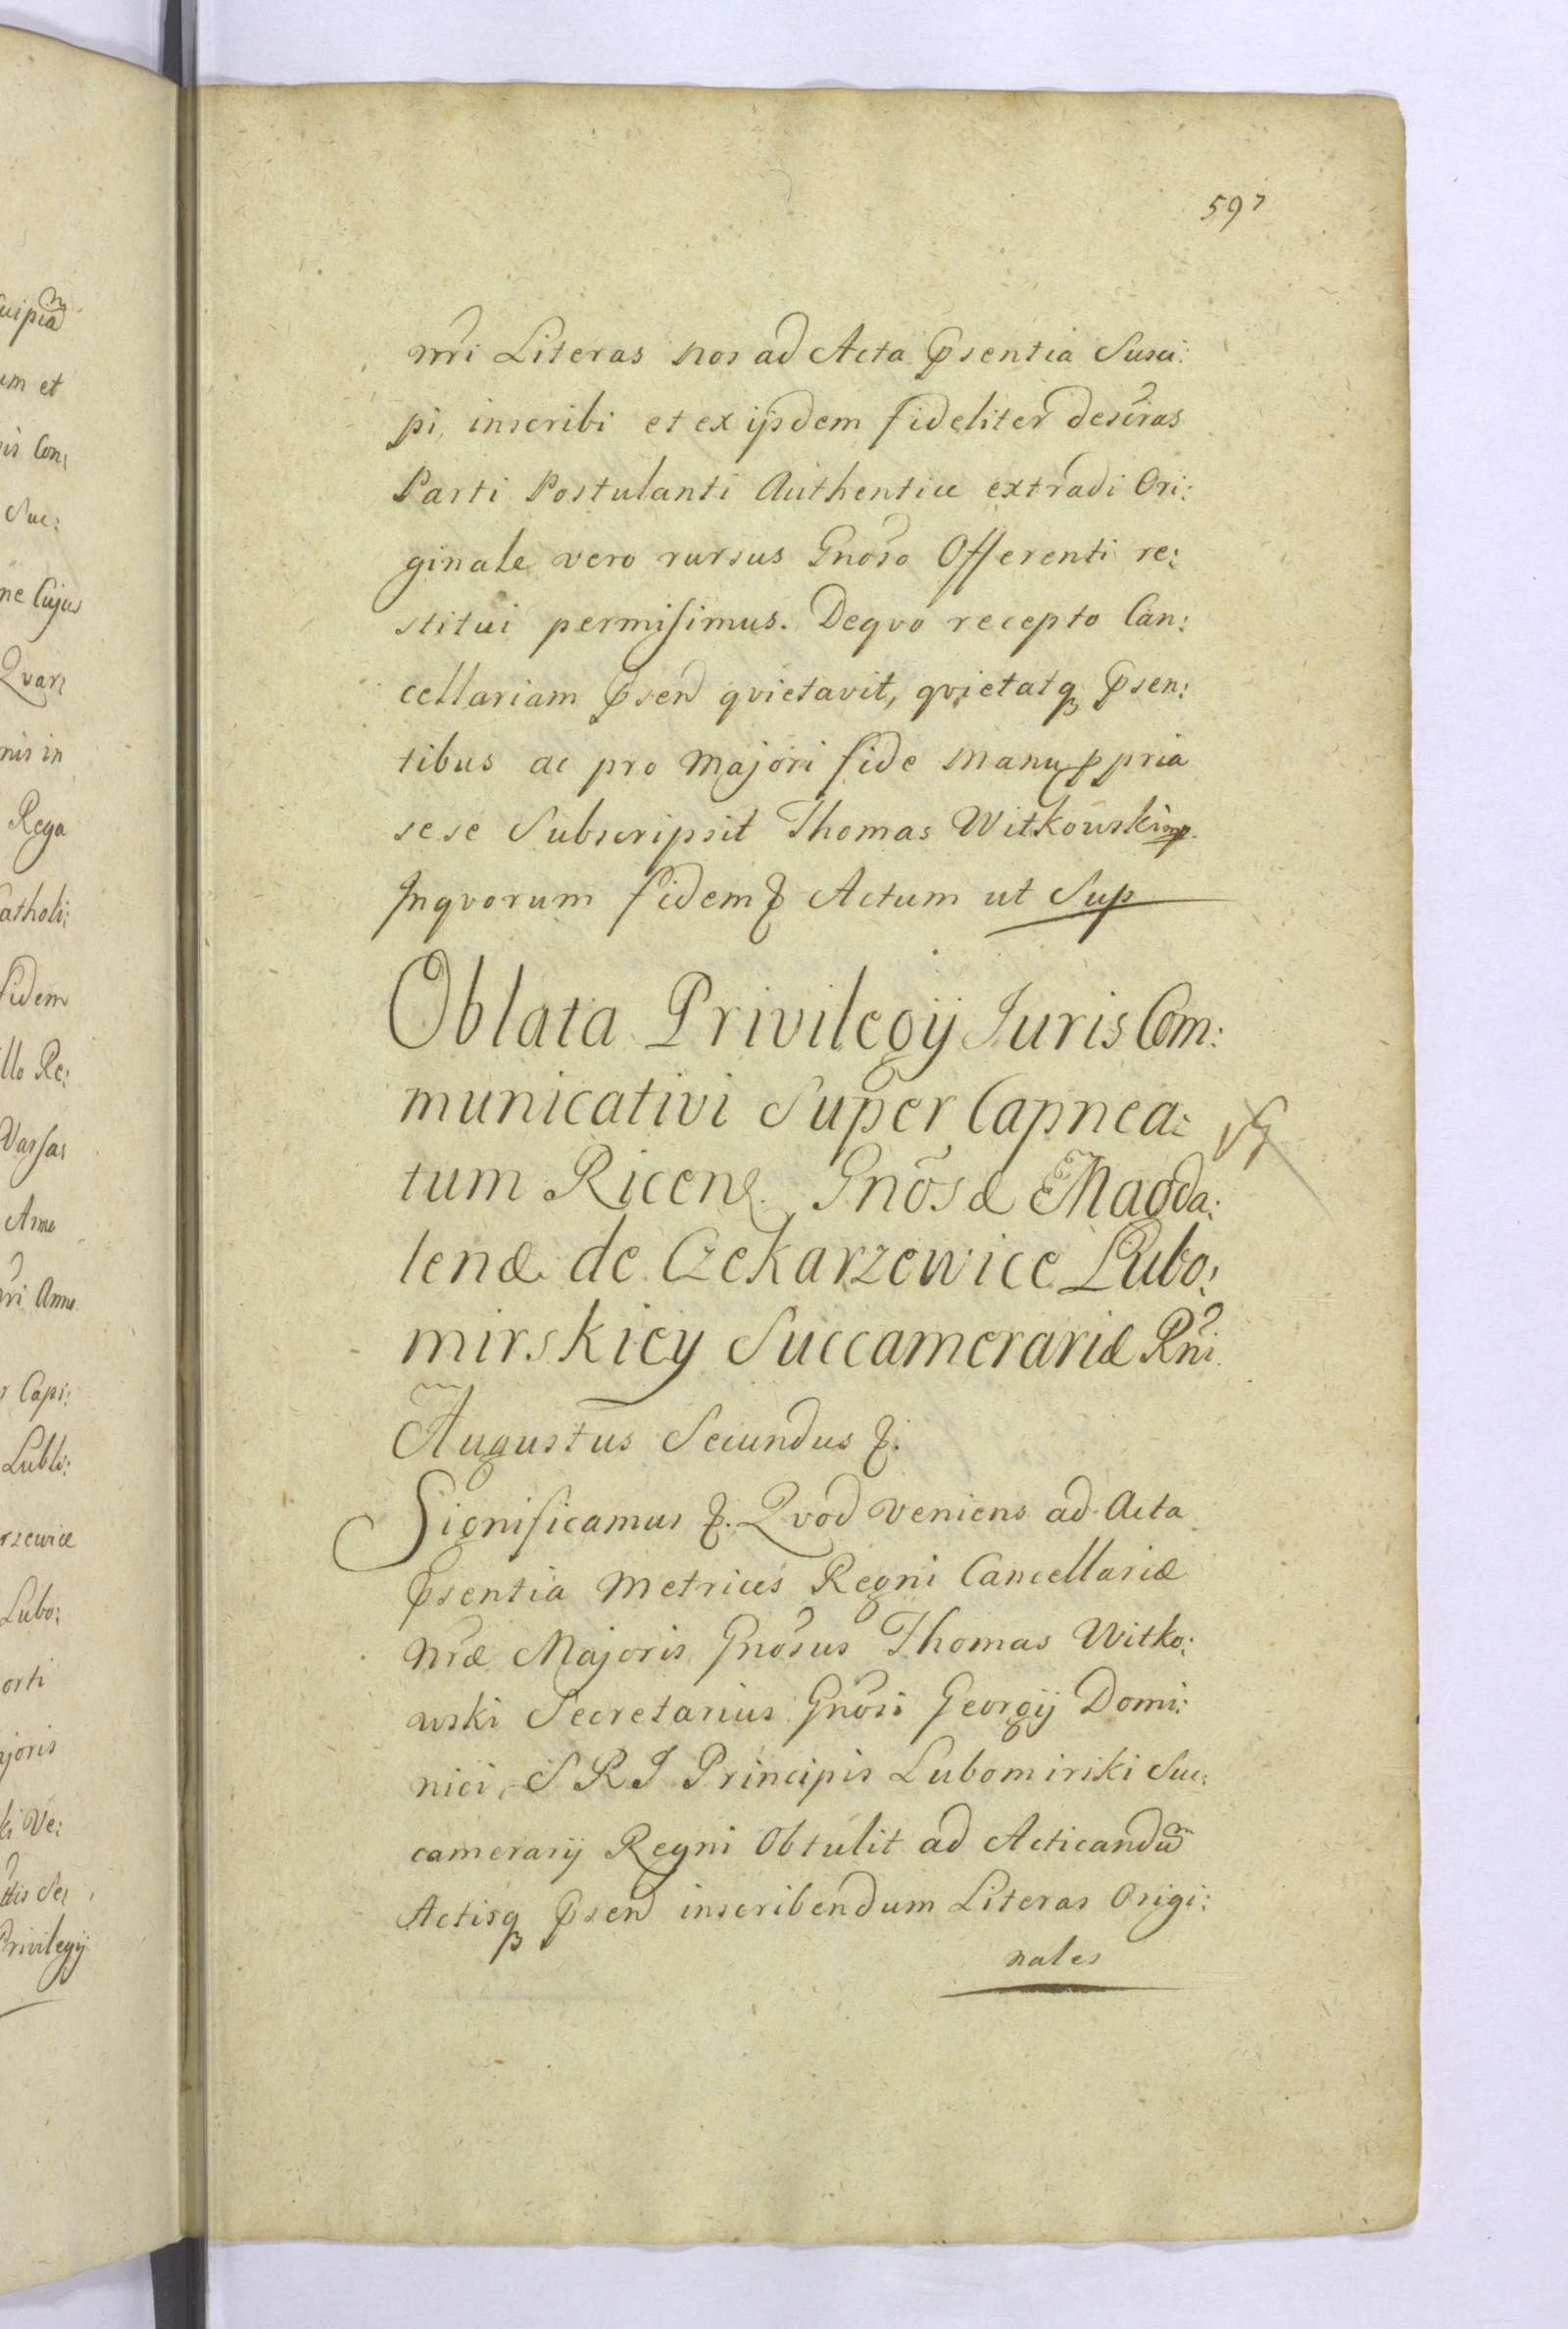 597
nri Literas nos ad Acta Psentia Susci:
pi, inscribi et ex ijsdem fideliter descras
Parti Postulanti Authentice extradi Ori:
ginale vero rursus Gnoso Offerenti re:
stitui permisimus. Deqvo recepto Can:
cellariam Psen qvietavit, qvietatq Psen:
tibus ac pro Majori fide manu ppria
sese Subscripsit Thomas Witkowski mp.
Inqvorum fidem & Actum ut Sup
Oblata Privilegij Juris Com:
municativi Super Capnea:
tum Ricen. Gnosæ Magda:
lenæ de Czekarzewice Lubo:
mirskiey Succamerariæ Rni
Augustus Secundus &.
Significamus &. Qvod veniens ad Acta
Psentia Metrices Regni Cancellariæ
nræ Majoris Gnosus Thomas Witko:
wski Secretarius Gnosi Georgij Domi:
nici, S R I Principis Lubomirski Suc:
camerarij Regni Obtulit ad Acticandum
Actisq Psen inscribendum Literas Origi:
nales